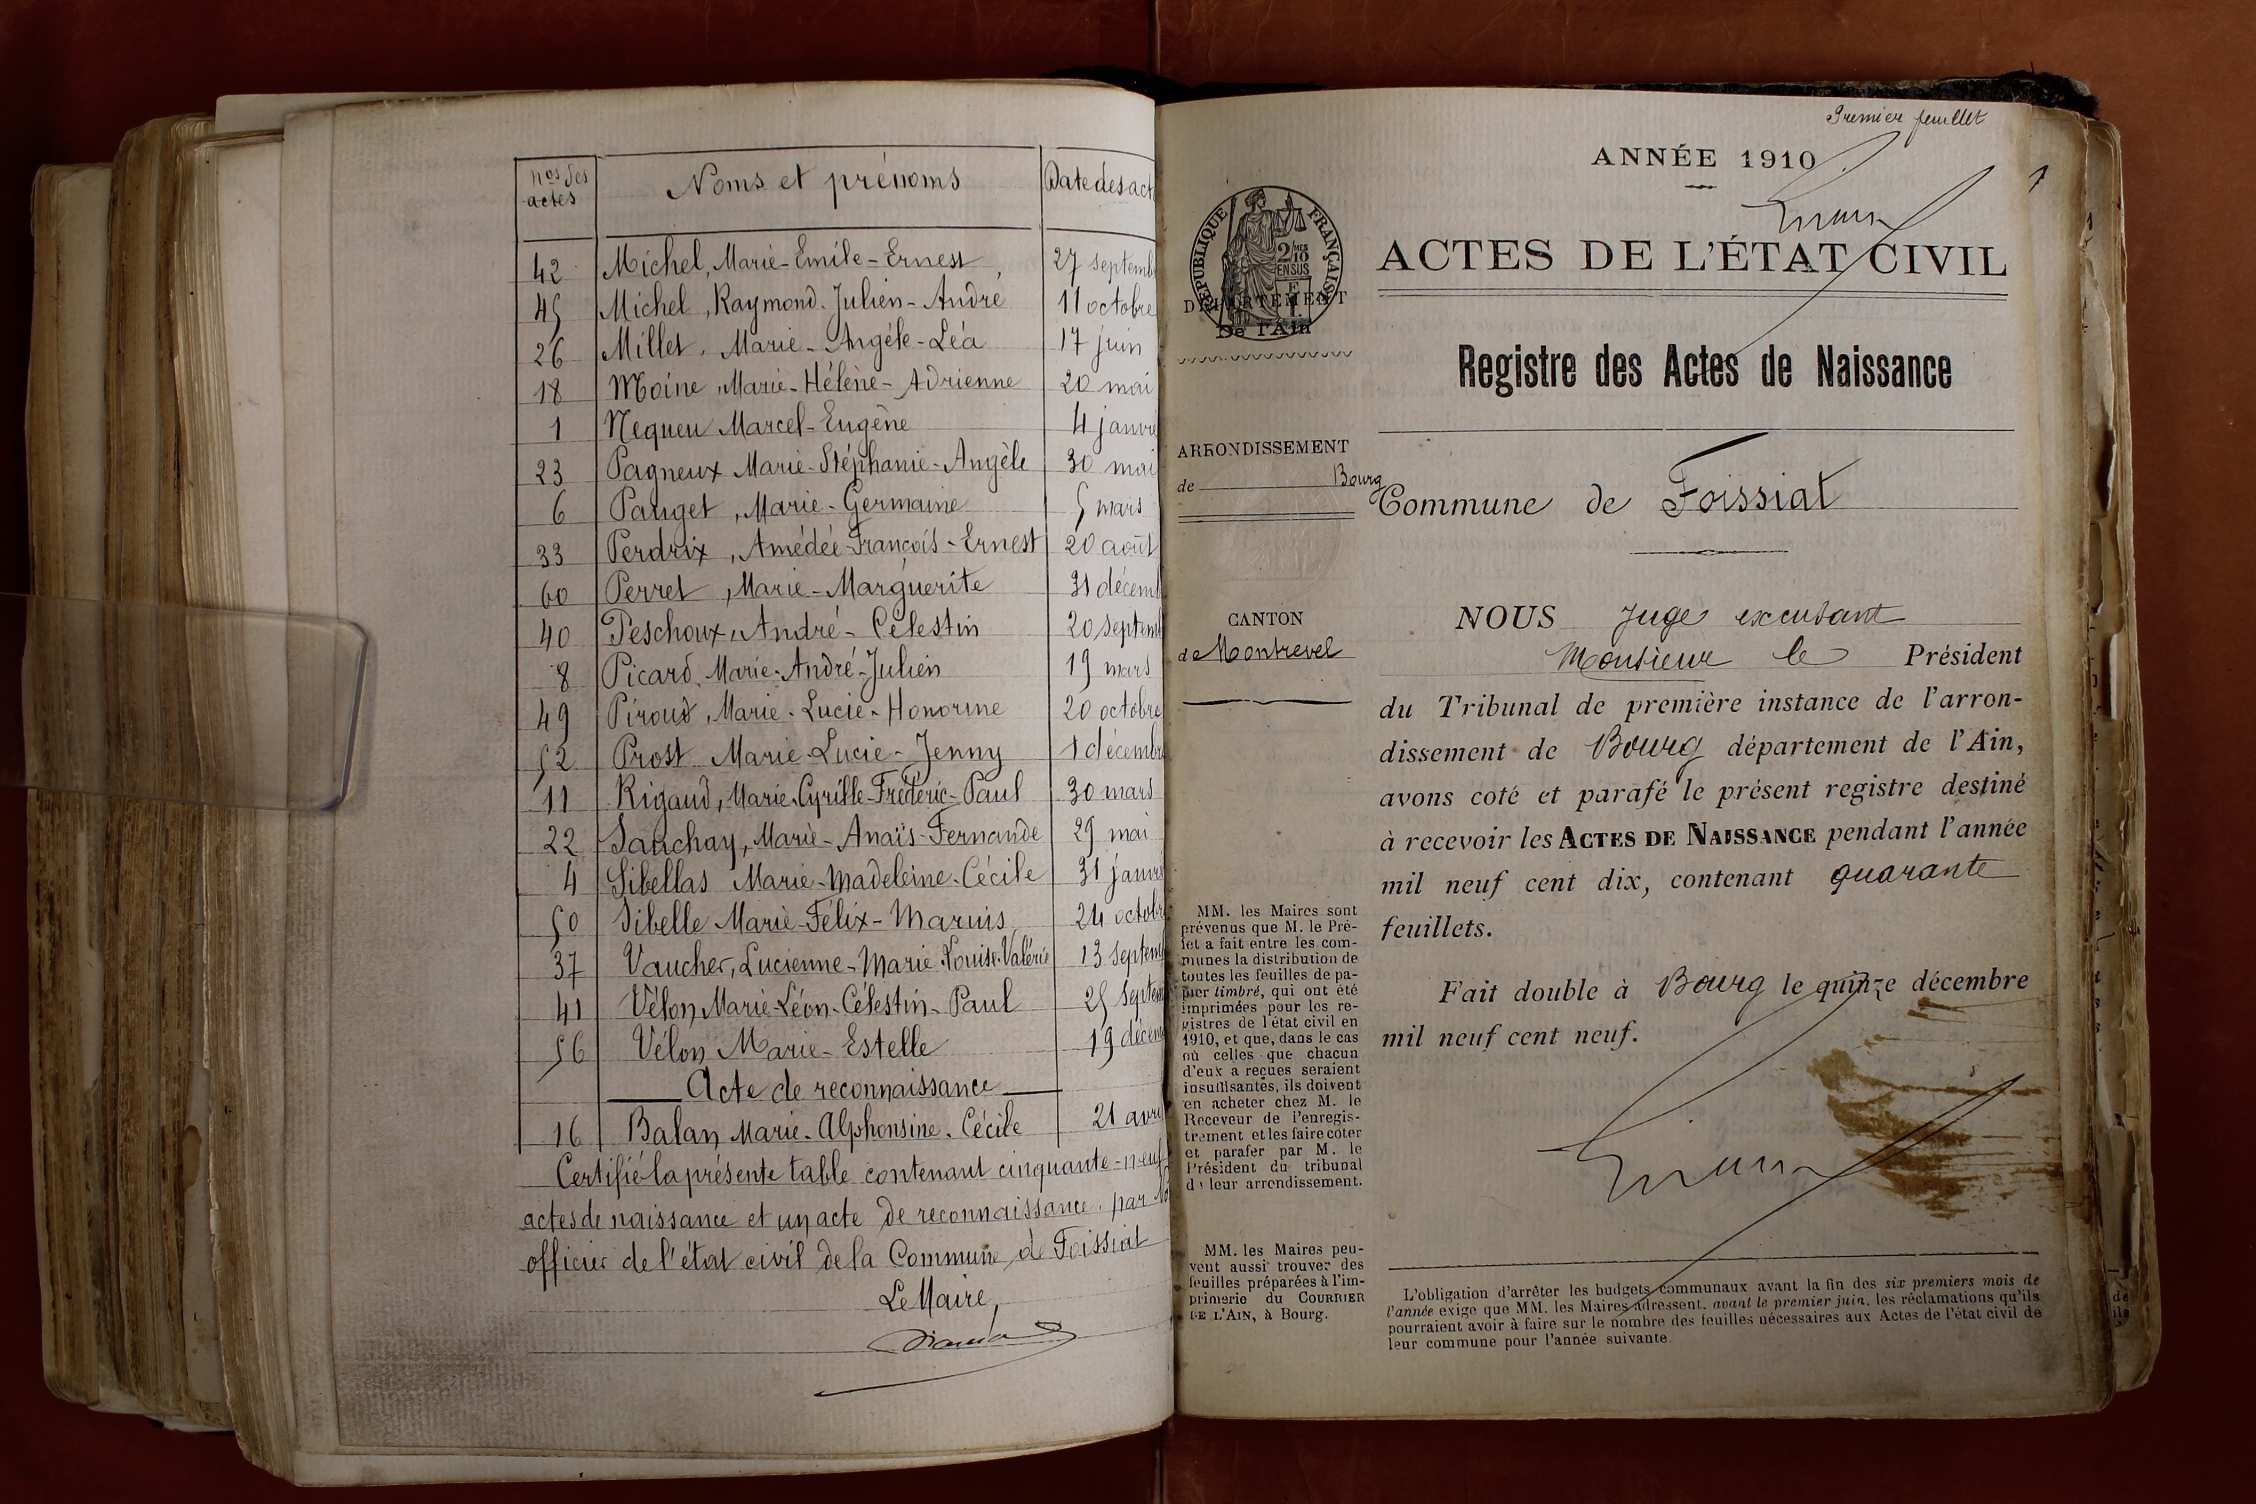 nos des actes Noms et prénoms Date des act
42 Michel, Marie-Emile-Ernest, 27 septemb
45 Michel, Raymond-Julien-André 11 octobre
26 Millet, Marie-Angèle-Léa 17 juin
18 Moine, Marie-Hélène-Adrienne 20 mai
1 Nequeu Marcel-Eugène 4 janvi
23 Pagneux Marie-Stéphanie-Angèle 30 mai
6 Pauget, Marie-Germaine 5 mars
33 Perdrix, Amédée-François-Ernest 20 août
60 Perret, Marie-Marguerite 31 décem
40 Peschoux, André-Célestin 20 septem
8 Picard, Marie-André-Julien 19 mars
49 Piroud, Marie-Lucie-Honorine 20 octobre
52 Prost Marie-Lucie-Jenny 1 décembr
11 Rigaud, Marie-Cyrille-Frédéric-Paul 30 mars
22 Sauchay, Marie-Anaïs-Fernande 29 mai
4 Sibellas Marie-Madeleine-Cécile 31 janvi
50 Sibelle Marie-Félix-Marius 24 octobr
37 Vaucher, Lucienne-Marie-Louise-Valérie 13 septem
41 Vélon Marie-Léon-Célestin-Paul 25 septem
56 Vélon Marie-Estelle 19 décem
Acte de reconnaissance
16 Balan Marie-Alphonsine-Cécile 21 avril
Certifié la présente table contenant cinquante-neuf
actes de naissance et un acte de reconnaissance, par No
officier de l'état civil de la Commune de Foissiat
Le Maire,
Premier feuillet
1
ANNÉE 1910
ACTES DE L'ÉTAT CIVIL
Registre des Actes de Naissance
RÉPUBLIQUE FRANÇAISE
2/10
MES
EN SUS
DÉPARTEMENT
De l'Ain
ARRONDISSEMENT
de Bourg
CANTON
de Montrevel
MM. les Maires sont
prévenus que M. le Pré-
fet a fait entre les com-
munes la distribution de
toutes les feuilles de pa-
pier timbré, qui ont été
imprimées pour les re-
gistres de l'état civil en
1910, et que, dans le cas
où celles que chacun
d'eux a reçues seraient
insuffisantes, ils doivent
en acheter chez M. le
Receveur de l'enregis-
trement et les faire coter
et parafer par M. le
Président du tribunal
de leur arrondissement.
MM. les Maires peu-
vent aussi trouver des
feuilles préparées à l'im-
primerie du COURRIER
DE L'AIN, à Bourg.
Commune de Foissiat
NOUS Juge excusant
Monsieur le Président
du Tribunal de première instance de l'arron-
dissement de Bourg département de l'Ain,
avons coté et parafé le présent registre destiné
à recevoir les ACTES DE NAISSANCE pendant l'année
mil neuf cent dix, contenant quarante
feuillets.
Fait double à Bourg le quinze décembre
mil neuf cent neuf.
L'obligation d'arrêter les budgets communaux avant la fin des six premiers mois de
l'année exige que MM. les Maires adressent, avant le premier juin, les réclamations qu'ils
pourraient avoir à faire sur le nombre des feuilles nécessaires aux Actes de l'état civil de
leur commune pour l'année suivante.